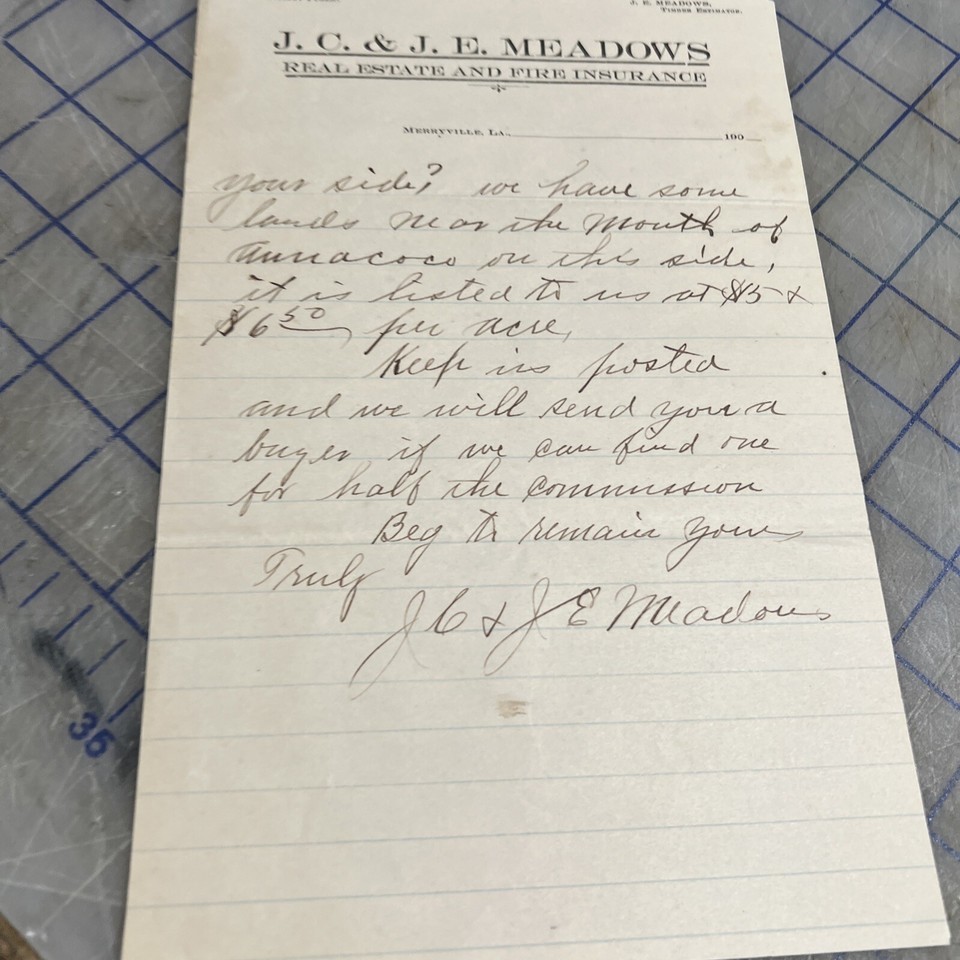 J. E. MEADOWS,
TIMBER ESTIMATOR.
J. C. & J. E. MEADOWS
REAL ESTATE AND FIRE INSURANCE
MERRYVILLE, LA., 190
your side? we have some
lands near the Mouth of
Annacoco on this side,
it is listed to us at $5 &
$6 50 per acre,
Keep us posted
and we will send you a
buyer if we can find one
for half the commission
Beg to remain yours
Truly
J C & J E Meadows
35